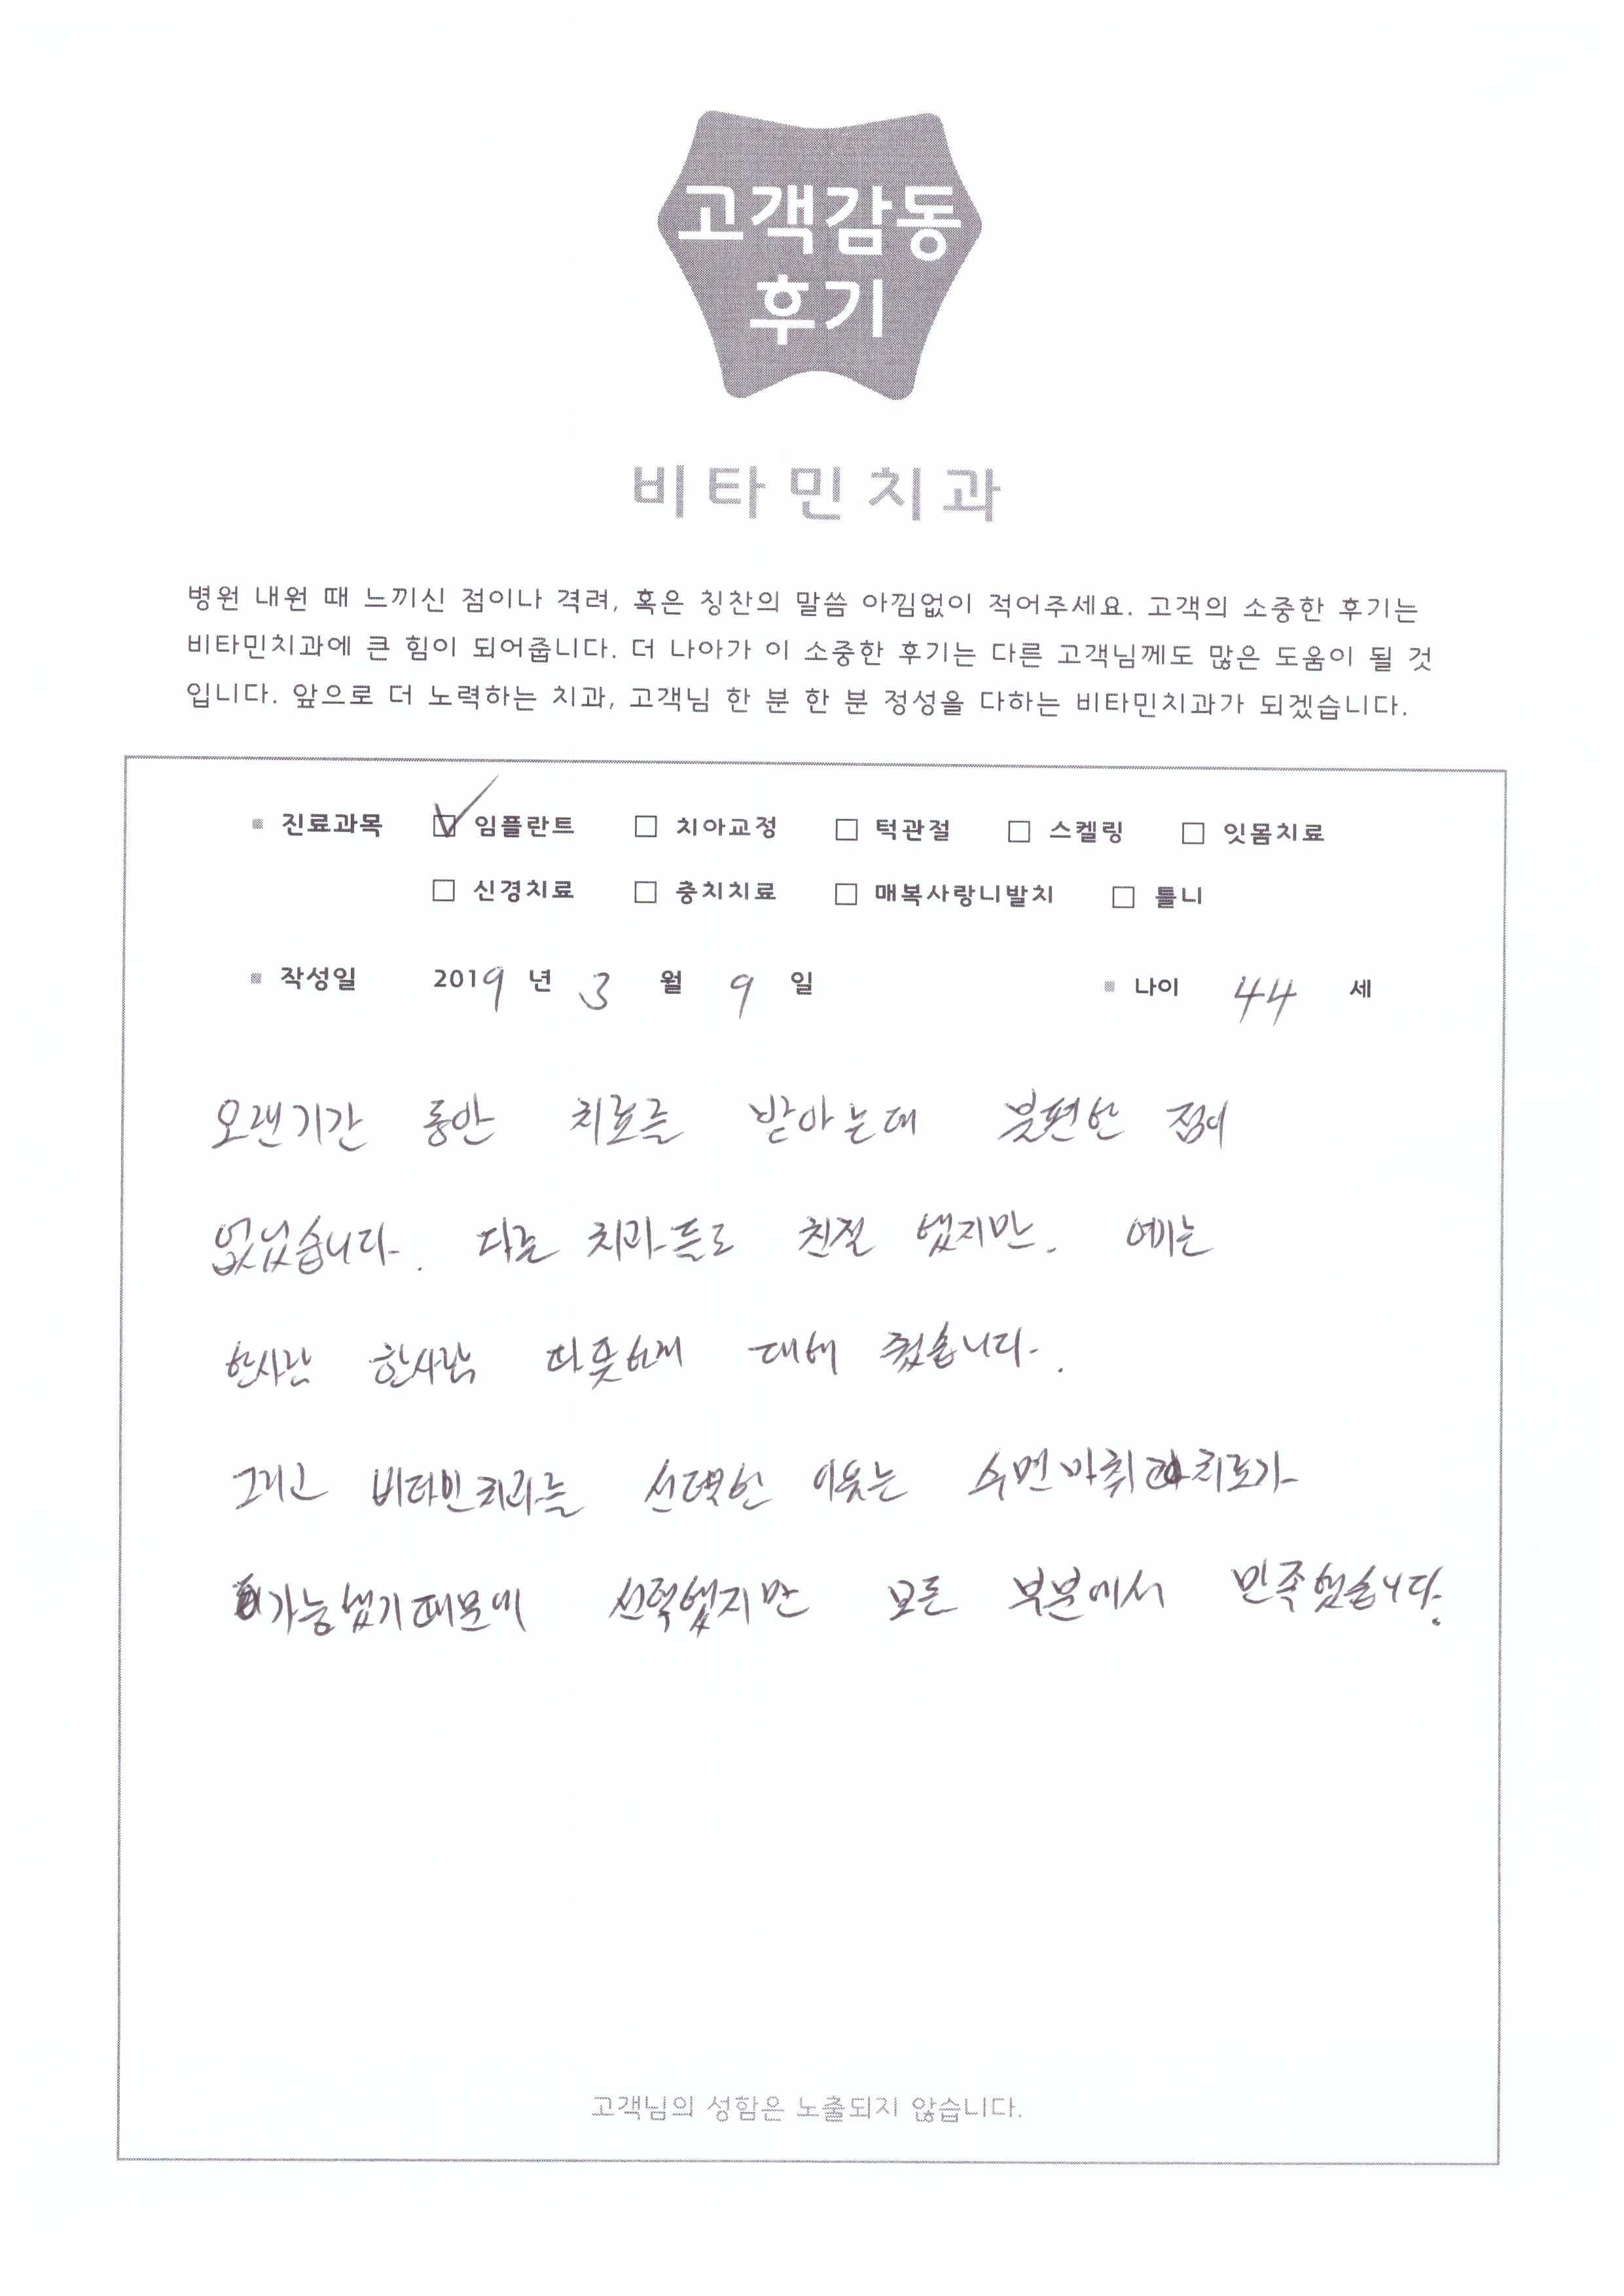 고객감동
후기
비타민치과
병원 내원 때 느끼신 점이나 격려, 혹은 칭찬의 말씀 아낌없이 적어주세요. 고객의 소중한 후기는
비타민치과에 큰 힘이 되어줍니다. 더 나아가 이 소중한 후기는 다른 고객님께도 많은 도움이 될 것
입니다. 앞으로 더 노력하는 치과, 고객님 한 분 한 분 정성을 다하는 비타민치과가 되겠습니다.
진료과목 임플란트 치아교정 턱관절 스켈링 잇몸치료
신경치료 충치치료 매복사랑니발치 틀니
작성일 2019 년 3 월 9 일 나이 44 세
오랜기간 동안 치료를 받아는데 불편한 점이
없었습니다. 다른 치과들도 친절 했지만. 여기는
한사람 한사람 따뜻하게 대해 줬습니다.
그리고 비타민치과를 선택한 이유는 수면마취 치료가
가능했기때문에 선택했지만 모든 부분에서 만족했습니다.
고객님의 성함은 노출되지 않습니다.